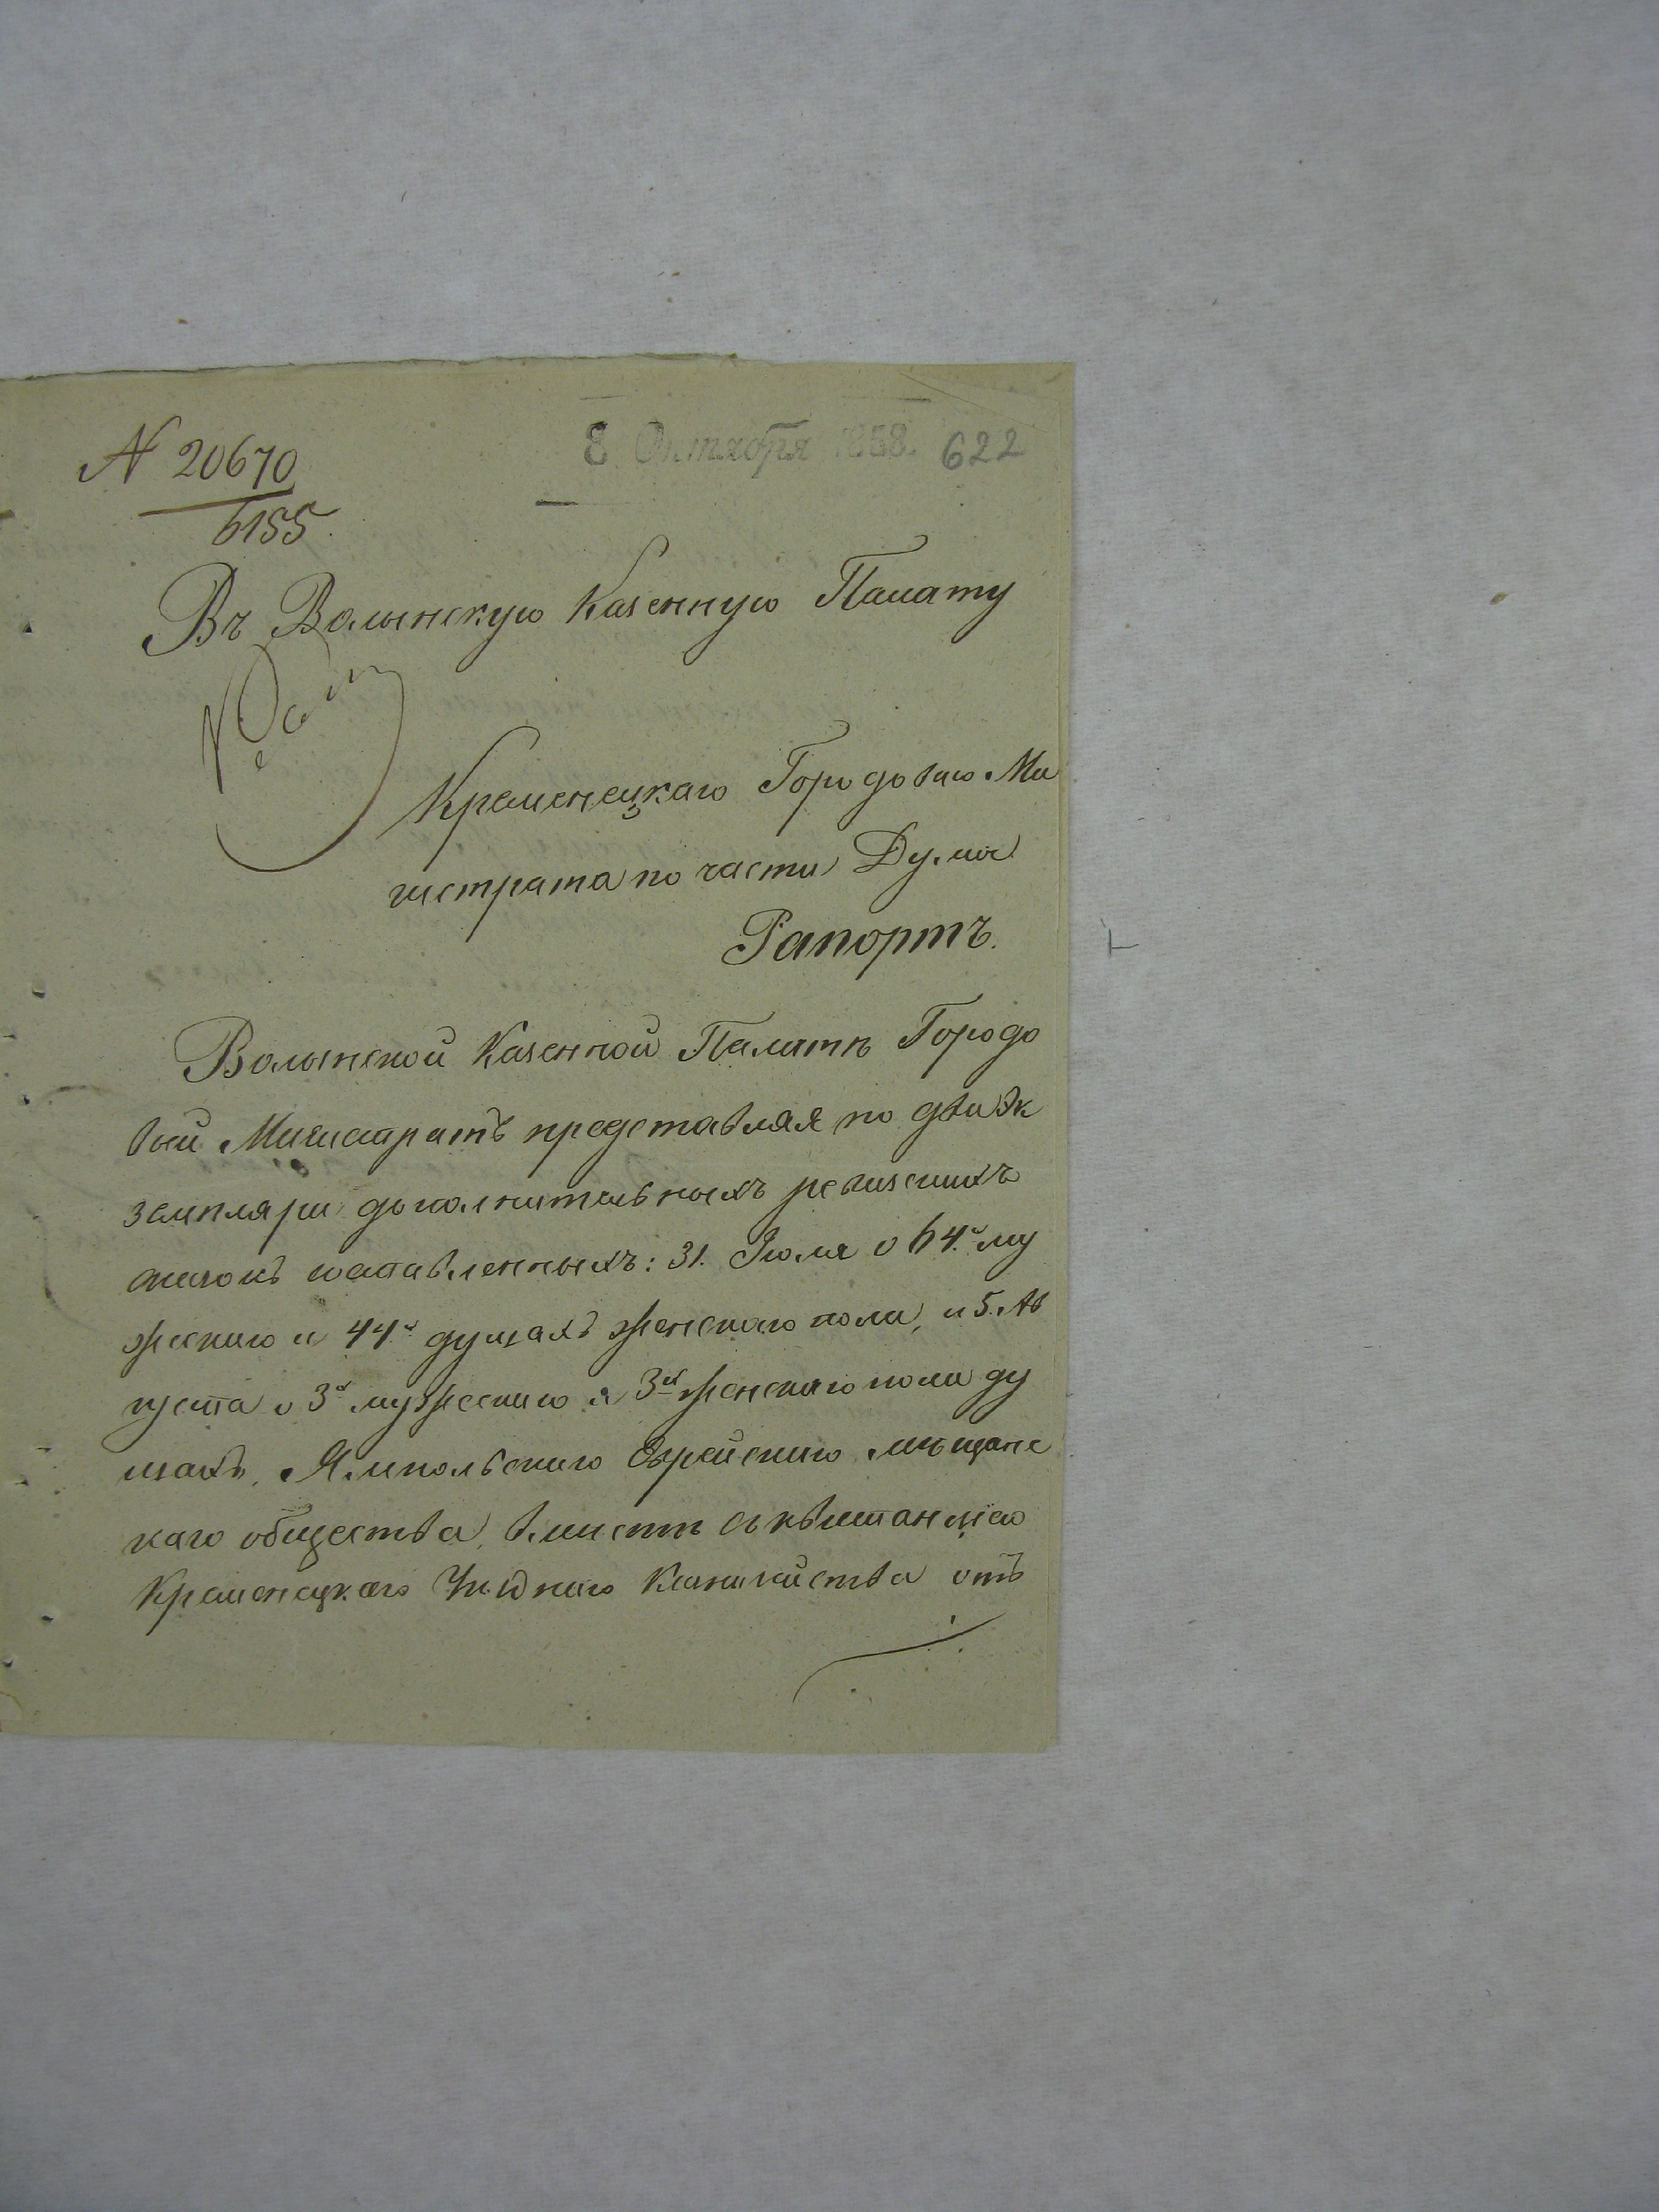 № 20670
6155.
8 Октября 1858. 622
Въ Волынскую Казенную Палату
Кременецкаго Городоваго Ма
гистрата по части Думы
Рапортъ.
Волынской Казенной Палатѣ Городо
вый Магистратъ представляя по два Эк
земпляра дополнительныхъ ревизскихъ
сказокъ составленныхъ: 31. Іюля о 64.х му
жескаго и 44х душахъ женскаго пола, и 5. Ав
густа о 3х мужескаго и 3х женскаго пола ду
шахъ, Ямпольскаго Еврейскаго мѣщанс
каго общества, вмѣстѣ съ квитанціею
Кременецкаго Уѣзднаго Казначейства отъ